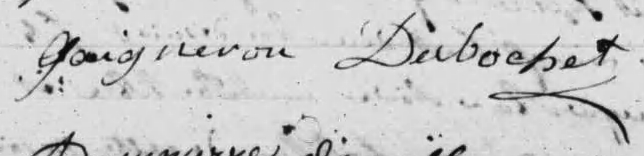 Gaigneron Dubochet